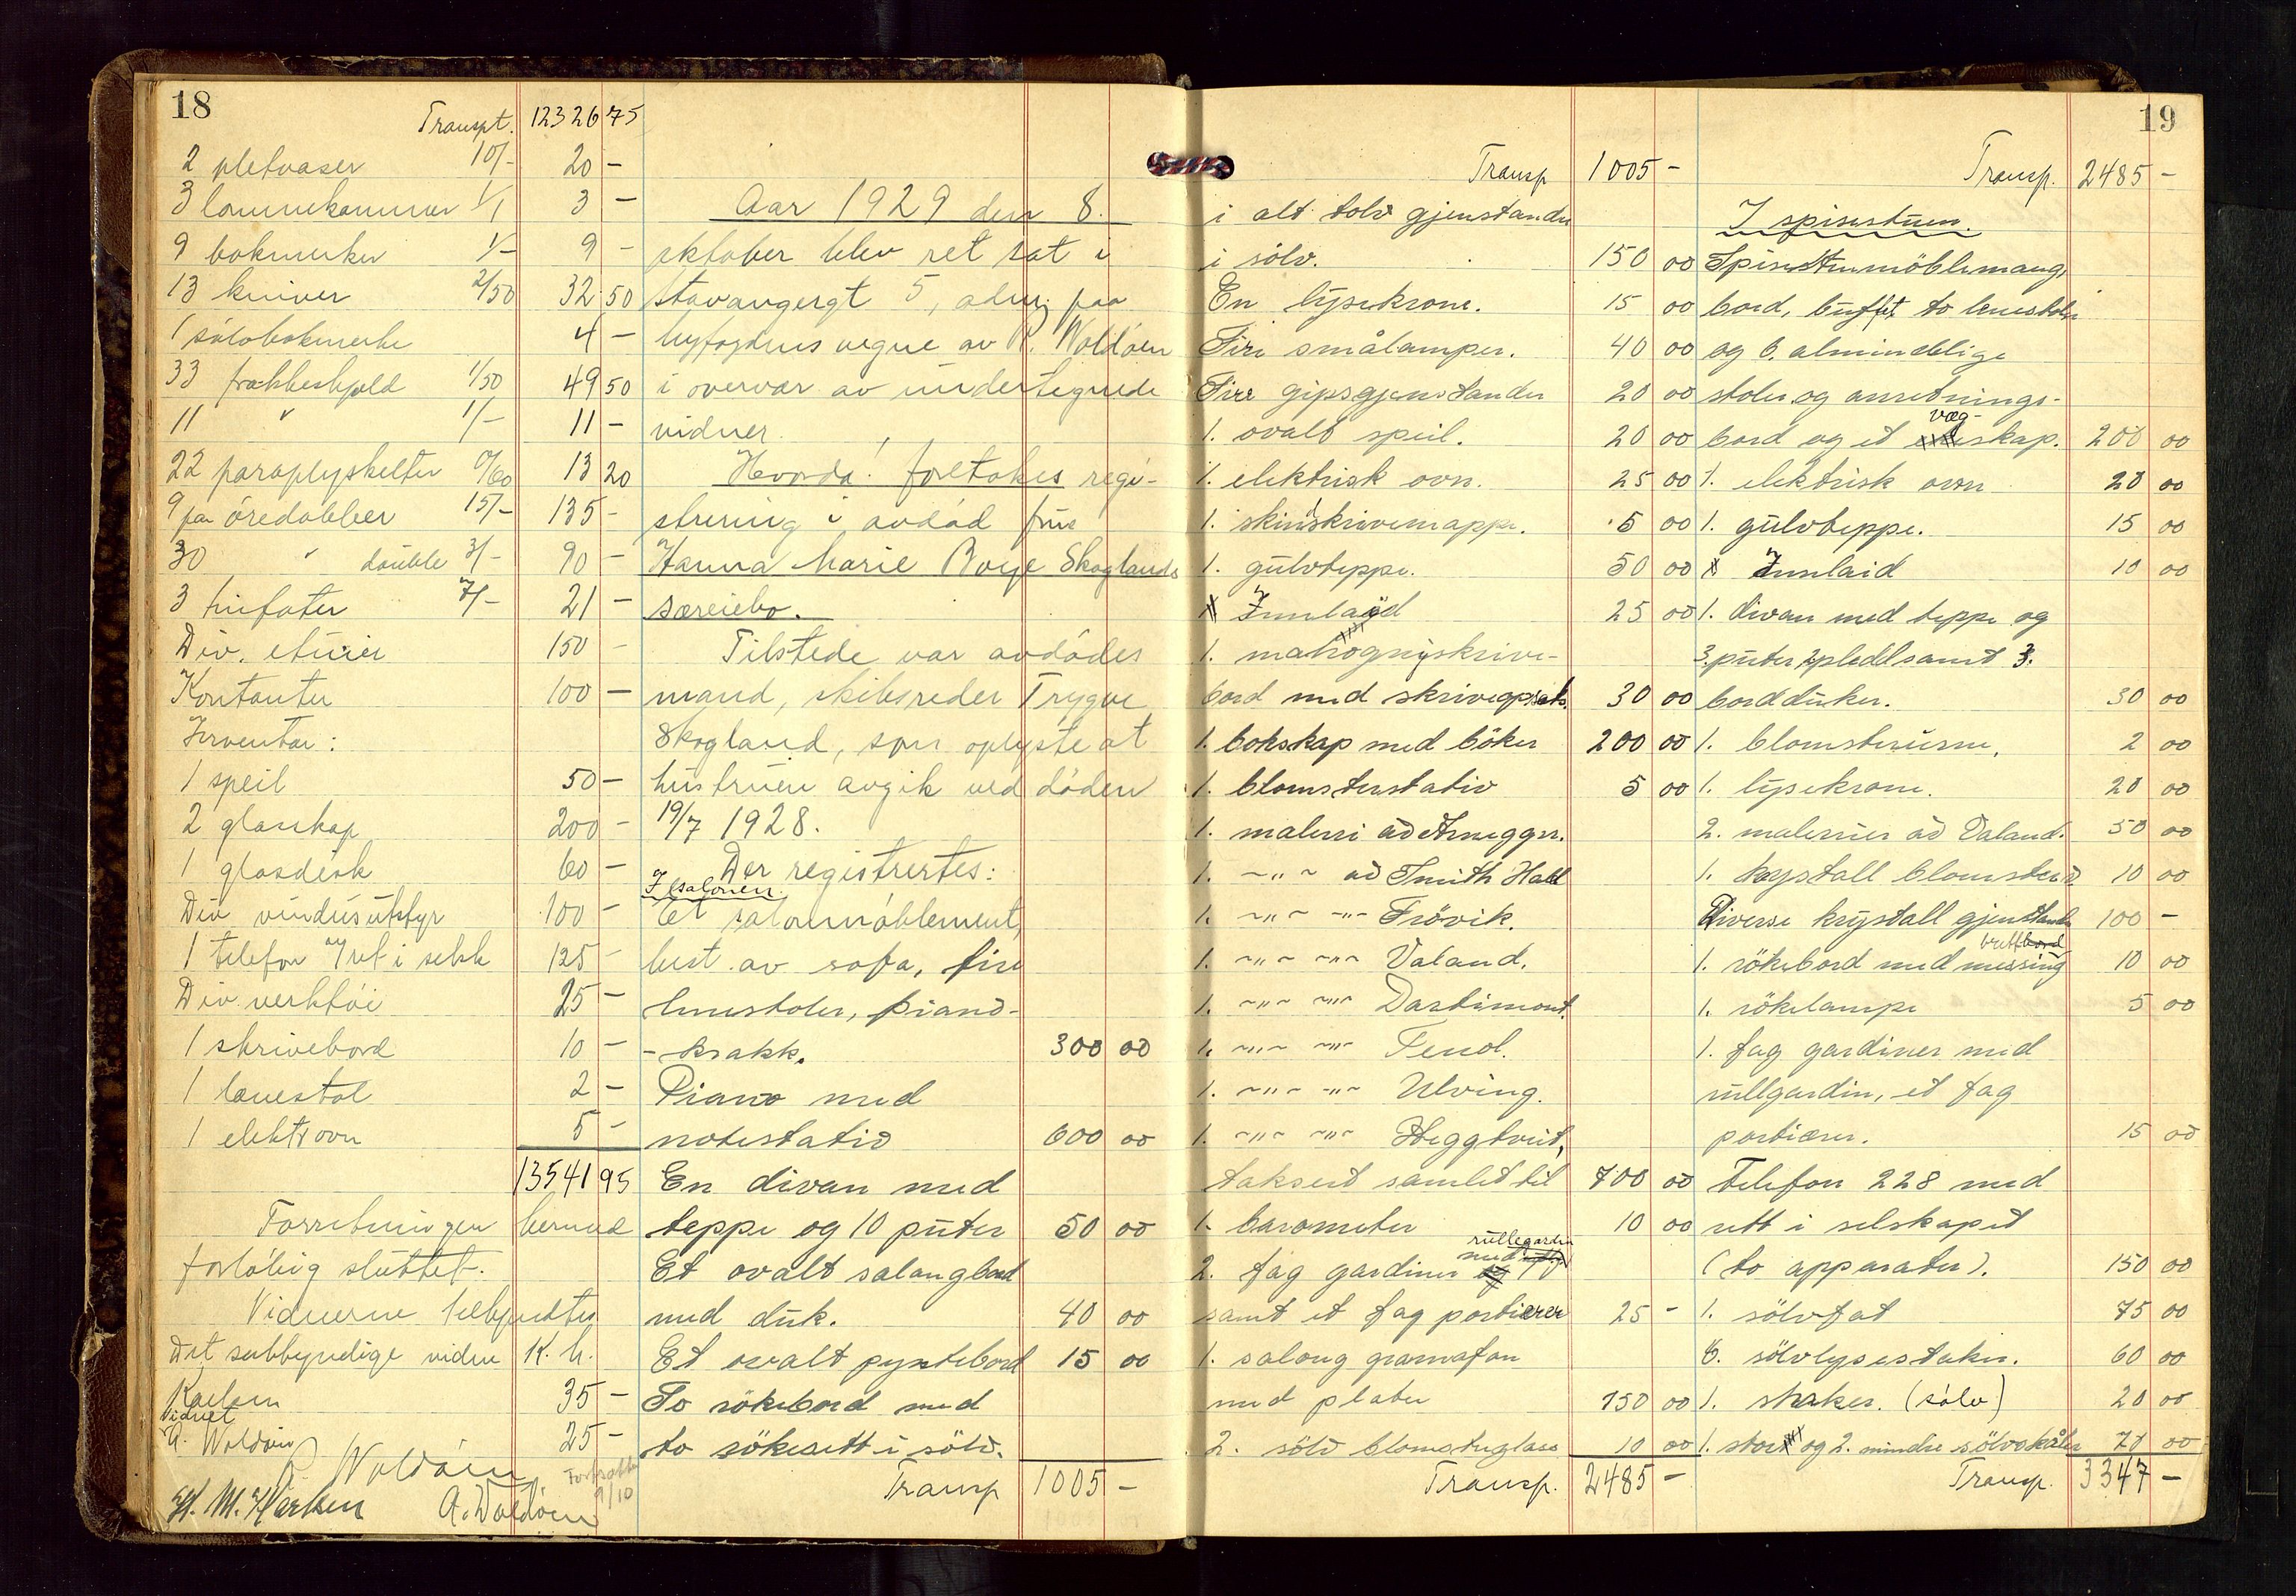 18
Transpt. 12326 75
2 pletvaser 10/- 20 -
3 lommekammer 1/1 3 -
9 bokmerker 1/- 9 -
13 kniver 2/50 32 50
1 sölvbokmerke 4 -
33 frakkeskjold 1/50 49 50
11 " 1/- 11 -
22 paraplyskilter 0/60 13 20
9 par öredobber 15/- 135 -
30 " double 3/- 90 -
3 7/- 21 -
Div. etuier 150 -
Kontanter 100 -
Inventar:
1 speil 50 -
2 glasskap 200 -
1 glasdisk 60 -
Div vindusutstyr 100 -
1 telefon m/ret i selsk 125 -
Div. verktöi 25 -
1 skrivebord 10 -
1 lænestol 2 -
1 elektr ovn 5 -
13541 95
Forretningen hermed
forlöbig sluttet.
Vidnerne
Det sakkyndige vidne K. h.
Karlsen 35 -
Vidnet
A. Woldöen 25 -
R. Woldöen
Fortsatte
9/10
A. Woldöen
Aar 1929 den 8.
oktober blev ret sat i
Stavangergt 5, adm. paa
byfogdens vegne av R. Woldöen
i overvær av undertegnede
vidner.
Hvorda! foretokes regi-
strering i avdöd frue
Hanna Marie Boye Skoglands
særeiebo.
Tilstede var avdödes
mand, skibsreder Trygve
Skogland, som oplyste at
hustruen avgik ved döden
19/7 1928.
Der registrertes:
I salonen.
Et salonmöblement,
best. av sofa, fire
lenestoler, piano-
-krakk. 300 00
Piano med
notestativ 600 00
En divan med
teppe og 10 puter 50 00
Et ovalt salongbord
med duk. 40 00
Et ovalt pyntebord 15 00
To rökebord med
to rökesett i sölv.
Transp 1005 -
19
Transp 1005 -
i alt tolv gjenstander
i sölv. 150 00
En lysekrone. 15 00
Fire smålamper. 40 00
Fire gipsgjenstander 20 00
1. ovalt speil. 20 00
1. elektrisk ovn. 25 00
1. skinnskrivemappe. 5 00
1. gulvteppe. 50 00
Innlaid 25 00
1. mahognyskrive-
bord med skriveopsats. 30 00
1. bokskap med böker 200 00
1. blomsterstativ 5 00
1. maleri av
1. -"- av Smith Hald
1. -"- -"- Frövik.
1. -"- -"- Valand.
1. -"- -"- Dartimont.
1. -"- -"-
1. -"- -"- Ulving.
1. -"- -"- Heggtveit,
taksert samlet til 700 00
1. barometer 10 00
rullegardin
2. fag gardiner med
samt et fag portierer 25 -
1. salong gramafon
med plater 150 00
2. sölv blomsterglass 10 00
Transp. 2485 -
Transp. 2485 -
I spisestuen.
Spisestuemöblemang,
bord, buffet, to lenestoler
og 6. almindelige
stoler og anretnings-
væg-
bord og et skap. 200 00
1. elektrisk ovn 20 00
1. gulvteppe. 15 00
Innlaid 10 00
1. divan med teppe og
3. puter 2 pledd samt 3.
bordduker. 30 00
1. blomsterurne, 2 00
1. lysekrone. 20 00
2. malerier av Valand. 50 00
1. krystall 10 00
Diverse krystall gjenstander 100 -
1. rökebord med messing 10 00
1. rökelampe 5 00
1. fag gardiner med
rullgardin, et fag
portierer. 15 00
Telefon 228 med
rett i selskapet
(to apparater). 150 00
1. sölvfat 75 00
6. sölvlysestaker. 60 00
1. shaker. (sölv) 20 00
1. stor og 2. mindre sölvskåler 70 00
Transp. 3347 -